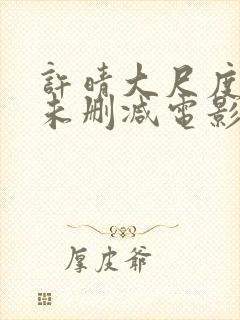 許晴大尺度
未刪減電影
厚皮爺